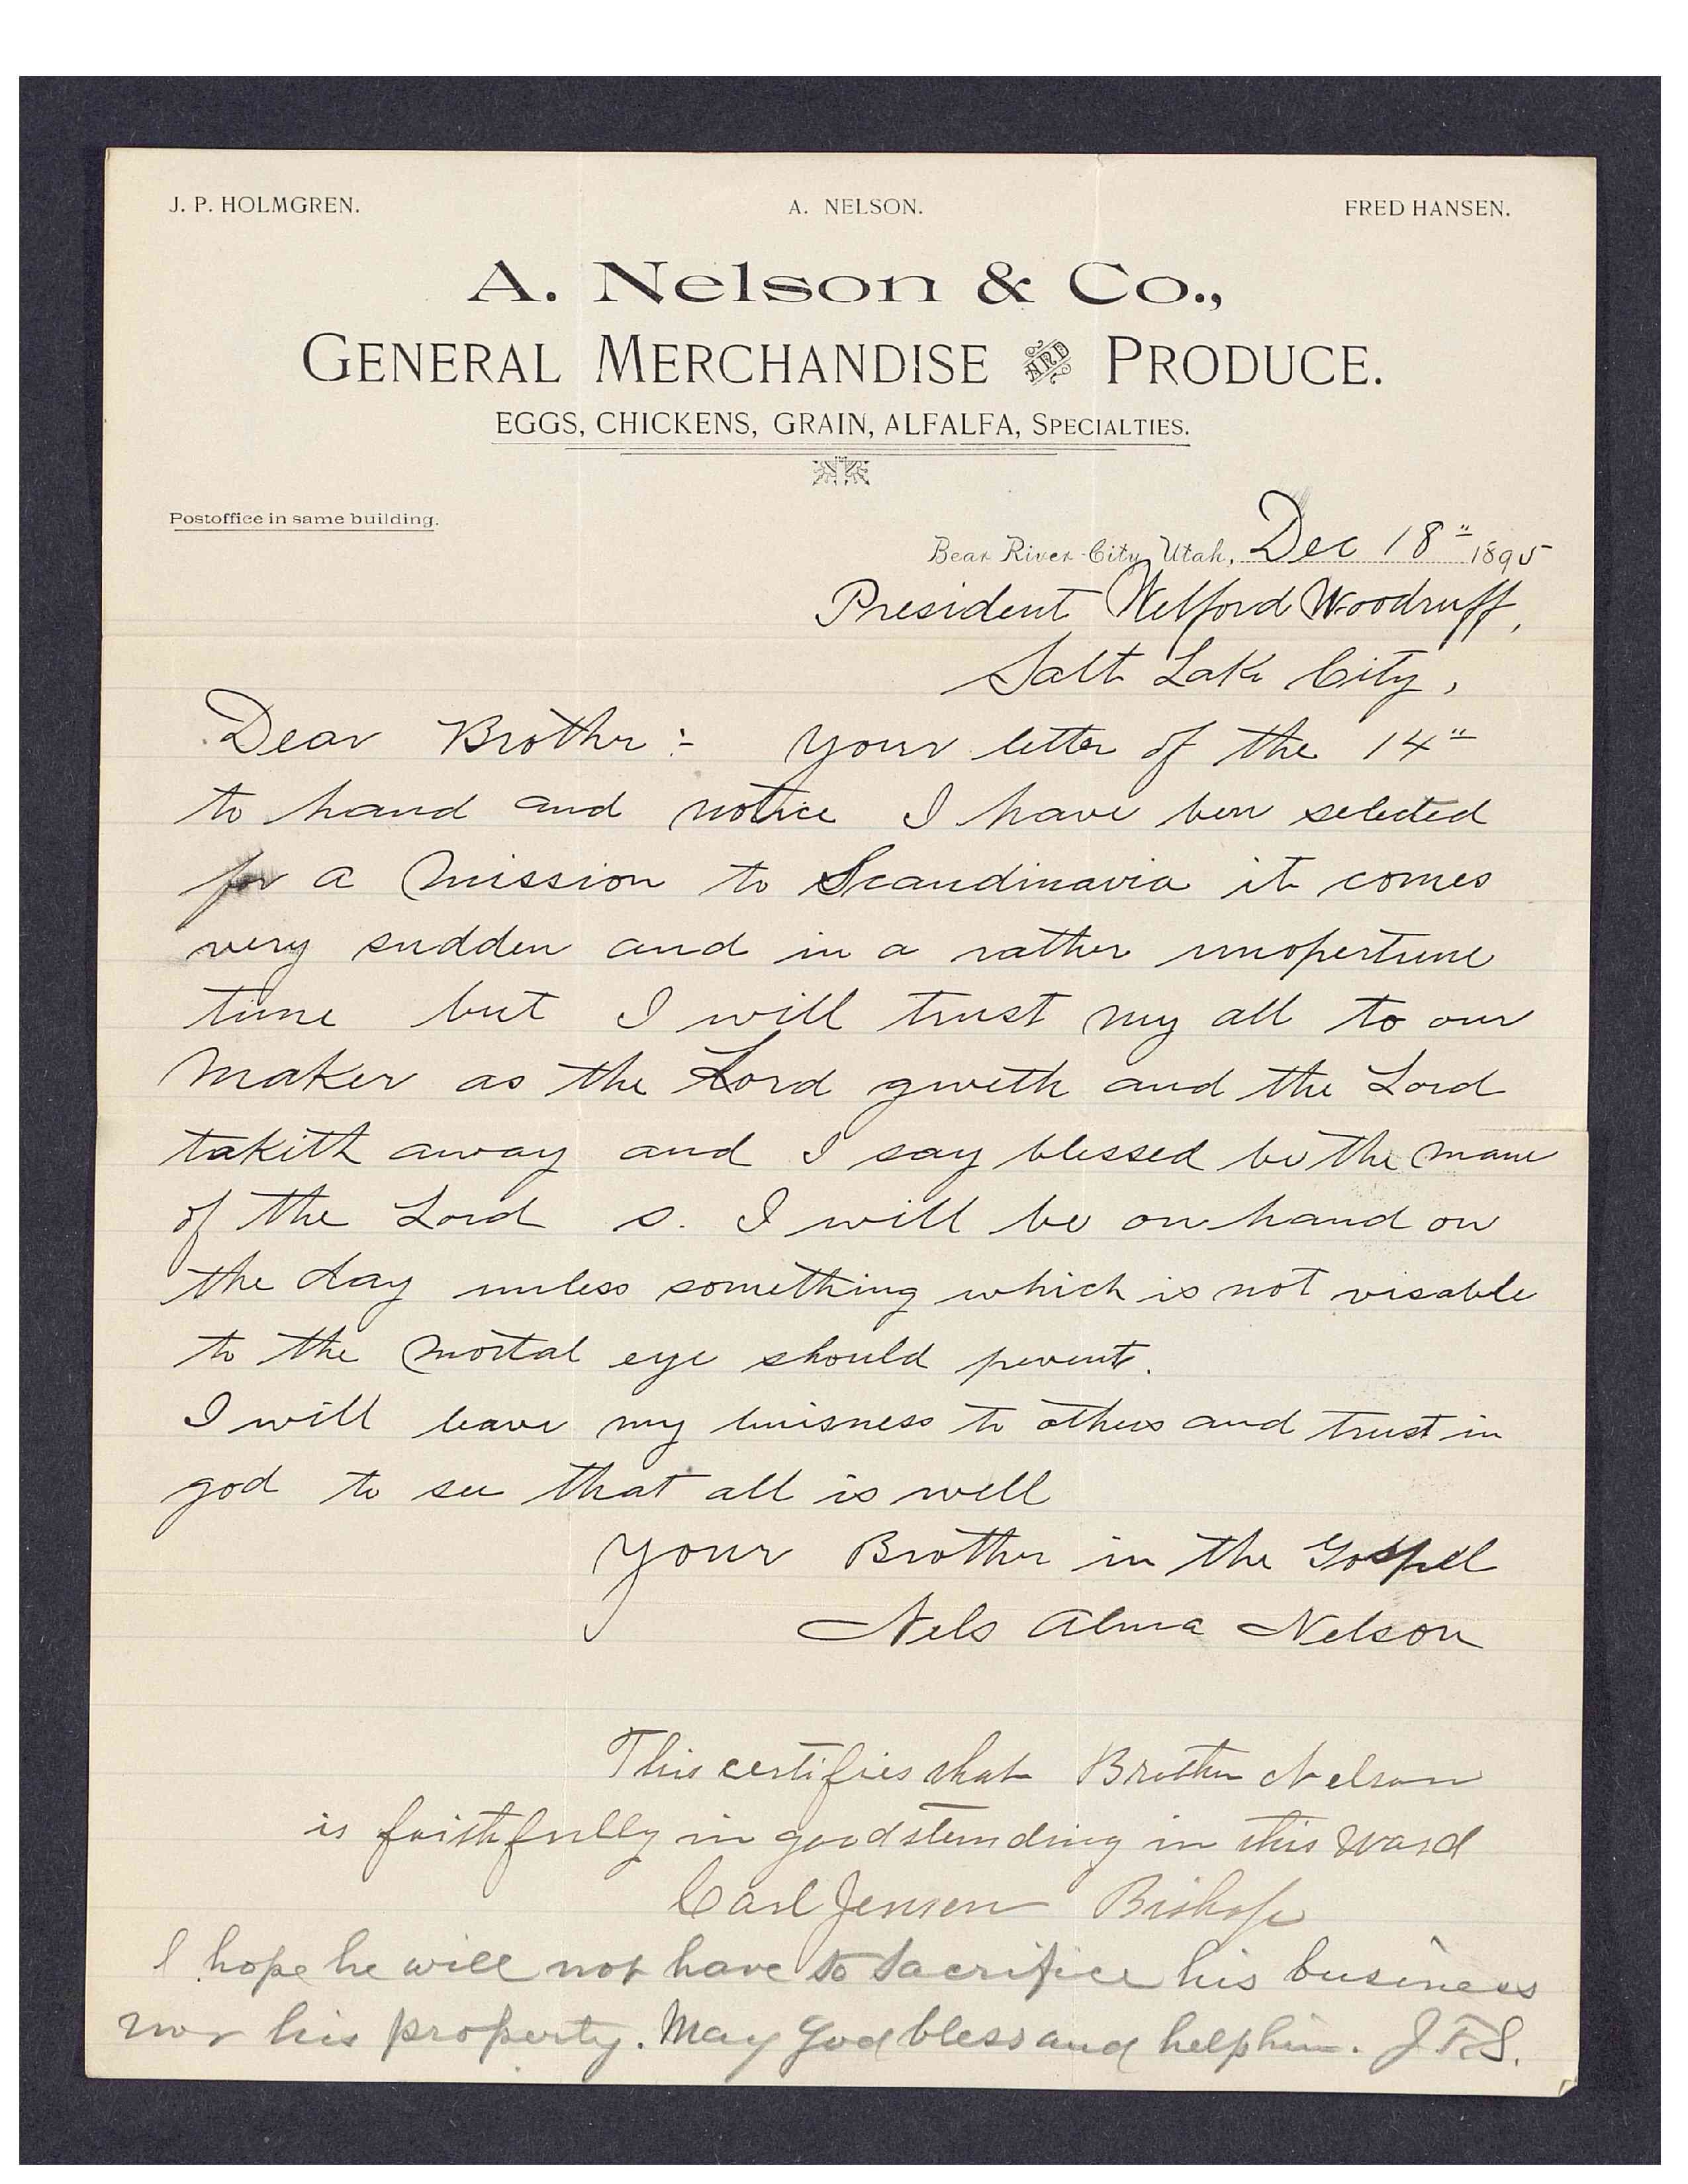 J. P. HOLMGREN. A. NELSON. FRED HANSEN.
A. Nelson & Co.,
GENERAL MERCHANDISE AND PRODUCE.
EGGS, CHICKENS, GRAIN, ALFALFA, SPECIALTIES.
Postoffice in same building.
Bear River City, Utah, Dec 18" 1895
President Welford Woodruff,
Salt Lake City,
Dear Brother :- Your letter of the 14"
to hand and notice I have ben selected
for a mission to Scandinavia it comes
very sudden and in a rather unopertune
time but I will trust my all to our
Maker as the Lord giveth and the Lord
takith away and I say blessed be the name
of the Lord s. I will be on hand on
the day unless something which is not visable
to the mortal eye should pevent.
I will leave my buisness to others and trust in
god to see that all is well
Your Brother in the Gospel
Nels Alma Nelson
This certifies that Brother Nelson
is faithfully in good standing in this Ward
Carl Jensen Bishop
I hope he will not have to sacrifice his business
nor his property. May God bless and help him. J.F.S.